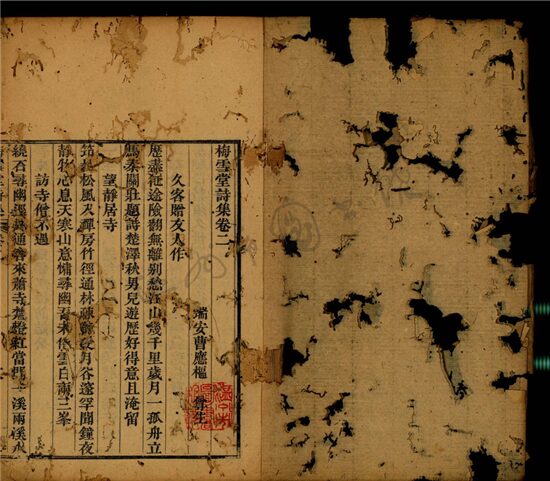 梅雪堂詩集卷二
瑞安曹應樞 生
久客贈友人作
歷盡征途險翻無離別愁江山幾千里歲月一孤舟立
馬秦關壯題詩楚澤秋男兒遊歷好得意且淹留
望靜居寺
松風入禪房竹徑通林疎月谷邃罕聞鐘夜
靜物心息天寒山意慵尋幽吾未雲日兩三峯
訪寺僧不遇
繞石尋幽徑通來蕭寺燈紅當一溪兩溪水